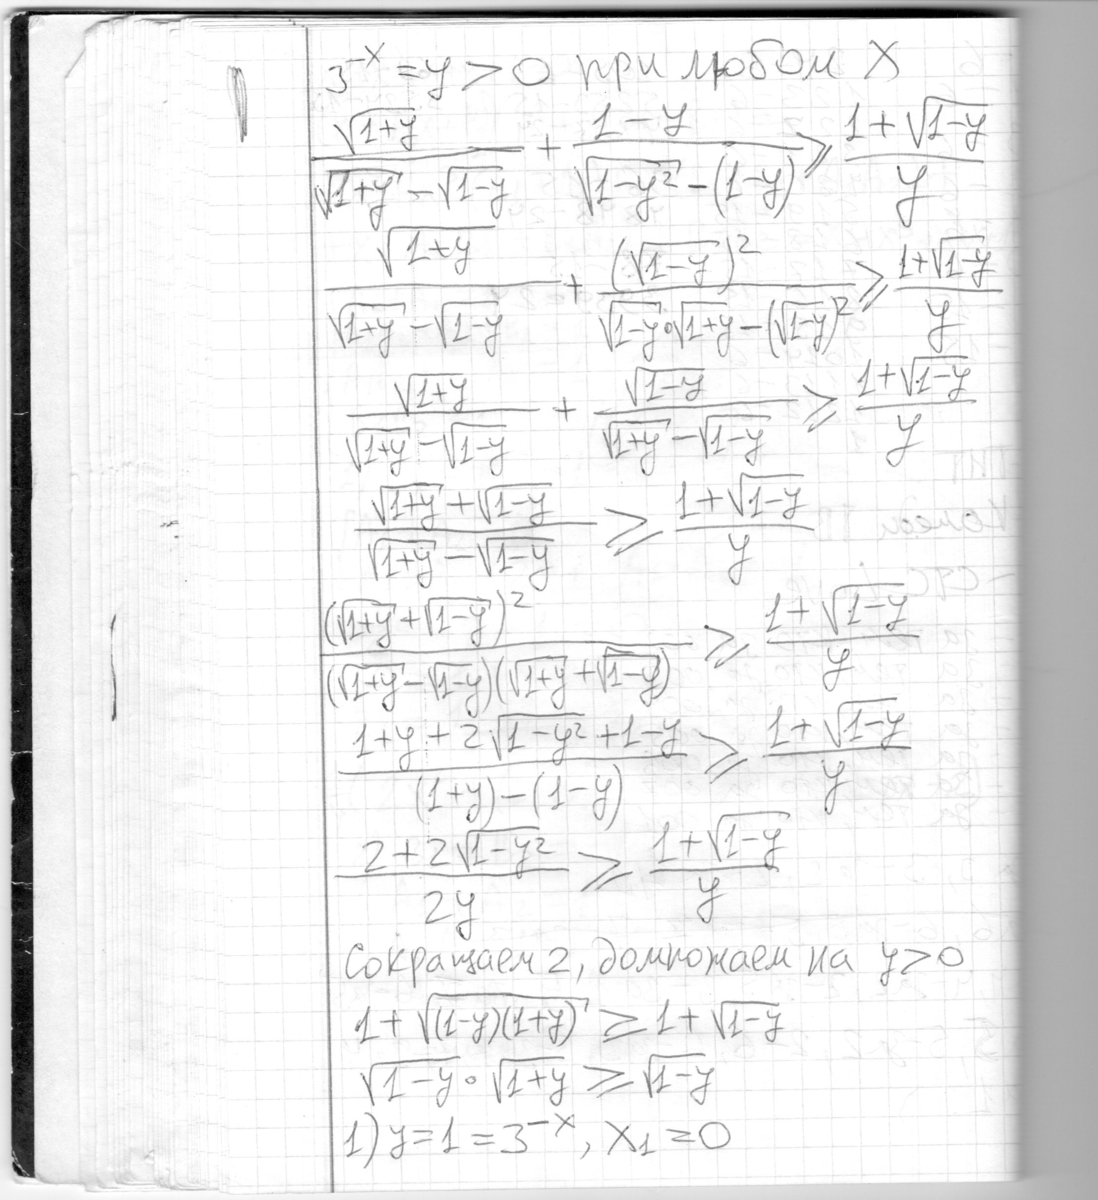 3^{-x} = y > 0 при любом X
\frac{\sqrt{1+y}}{\sqrt{1+y} - \sqrt{1-y}} + \frac{1-y}{\sqrt{1-y^2} - (1-y)} ⩾ \frac{1+\sqrt{1-y}}{y}
\frac{\sqrt{1+y}}{\sqrt{1+y} - \sqrt{1-y}} + \frac{(\sqrt{1-y})^2}{\sqrt{1-y} \cdot \sqrt{1+y} - (\sqrt{1-y})^2} ⩾ \frac{1+\sqrt{1-y}}{y}
\frac{\sqrt{1+y}}{\sqrt{1+y} - \sqrt{1-y}} + \frac{\sqrt{1-y}}{\sqrt{1+y} - \sqrt{1-y}} ⩾ \frac{1+\sqrt{1-y}}{y}
\frac{\sqrt{1+y} + \sqrt{1-y}}{\sqrt{1+y} - \sqrt{1-y}} ⩾ \frac{1+\sqrt{1-y}}{y}
\frac{(\sqrt{1+y} + \sqrt{1-y})^2}{(\sqrt{1+y} - \sqrt{1-y})(\sqrt{1+y} + \sqrt{1-y})} ⩾ \frac{1+\sqrt{1-y}}{y}
\frac{1+y + 2\sqrt{1-y^2} + 1-y}{(1+y) - (1-y)} ⩾ \frac{1+\sqrt{1-y}}{y}
\frac{2+2\sqrt{1-y^2}}{2y} ⩾ \frac{1+\sqrt{1-y}}{y}
Сокращаем 2, домножаем на y>0
1 + \sqrt{(1-y)(1+y)} ⩾ 1 + \sqrt{1-y}
\sqrt{1-y} \cdot \sqrt{1+y} ⩾ \sqrt{1-y}
1) y = 1 = 3^{-x}, x_1 = 0